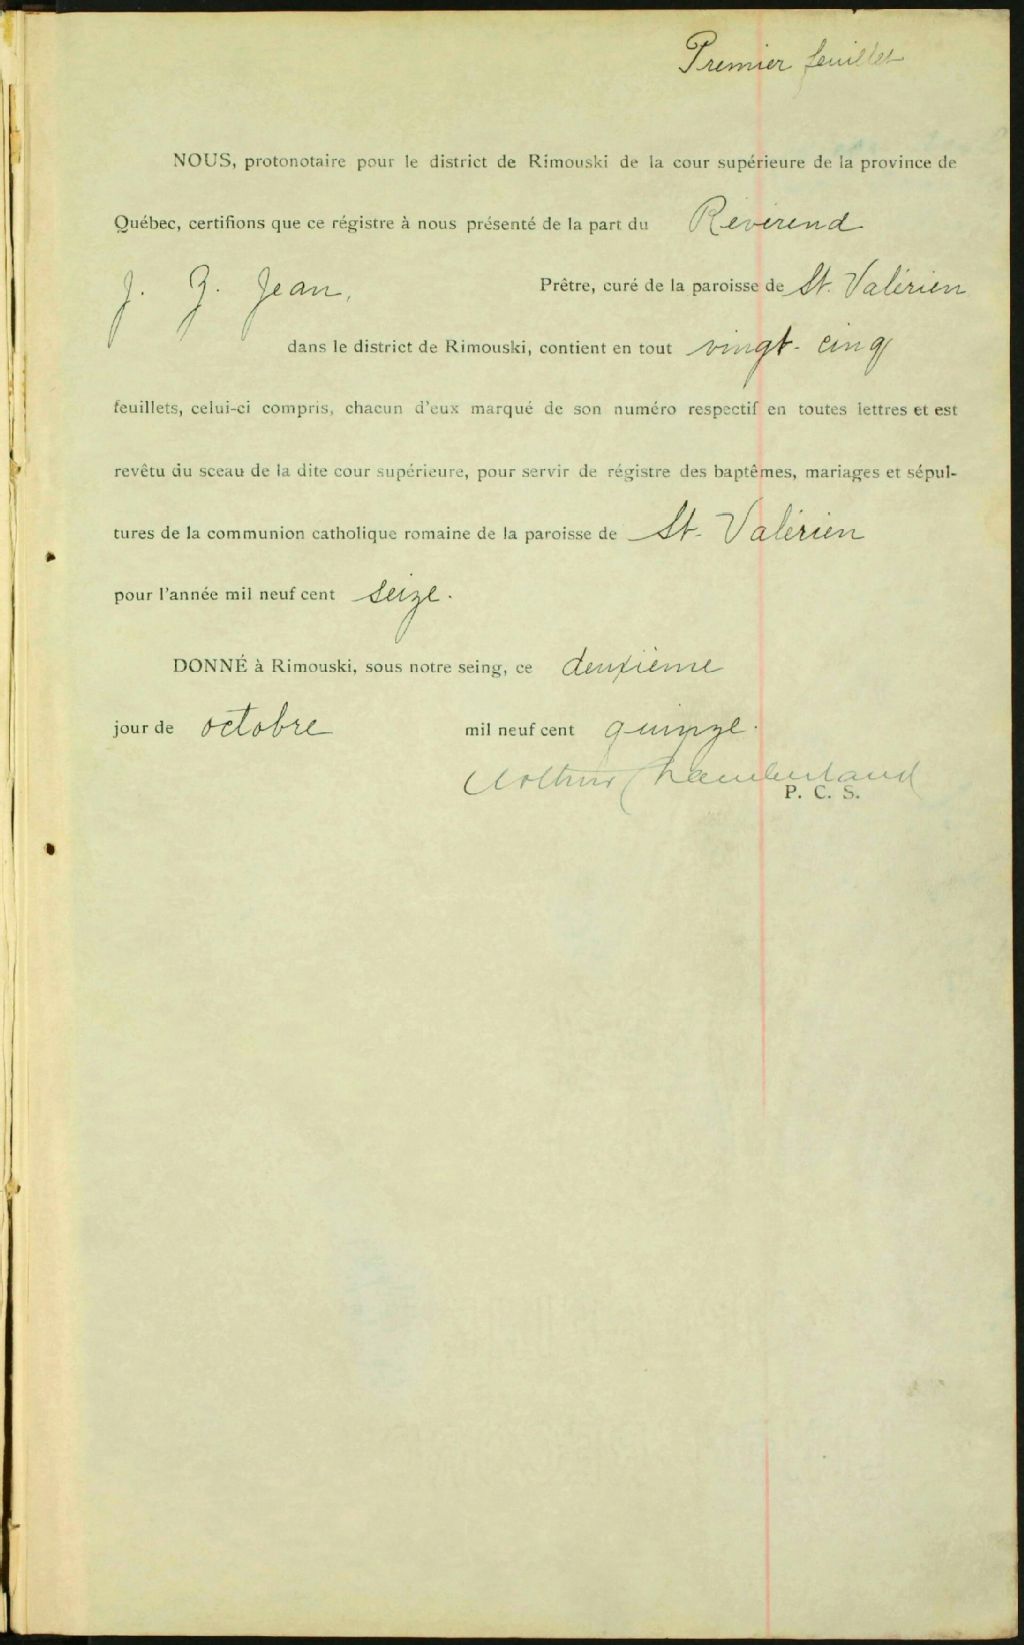 Premier feuillet
NOUS, protonotaire pour le district de Rimouski de la cour supérieure de la province de
Québec, certifions que ce régistre à nous présenté de la part du Révérend
J. Z. Jean, Prêtre, curé de la paroisse de St. Valérien
dans le district de Rimouski, contient en tout vingt-cinq
feuillets, celui-ci compris, chacun d'eux marqué de son numéro respectif en toutes lettres et est
revêtu du sceau de la dite cour supérieure, pour servir de régistre des baptêmes, mariages et sépul-
tures de la communion catholique romaine de la paroisse de St-Valérien
pour l'année mil neuf cent seize.
DONNÉ à Rimouski, sous notre seing, ce deuxième
jour de octobre mil neuf cent quinze.
Arthur Chamberland
P. C. S.